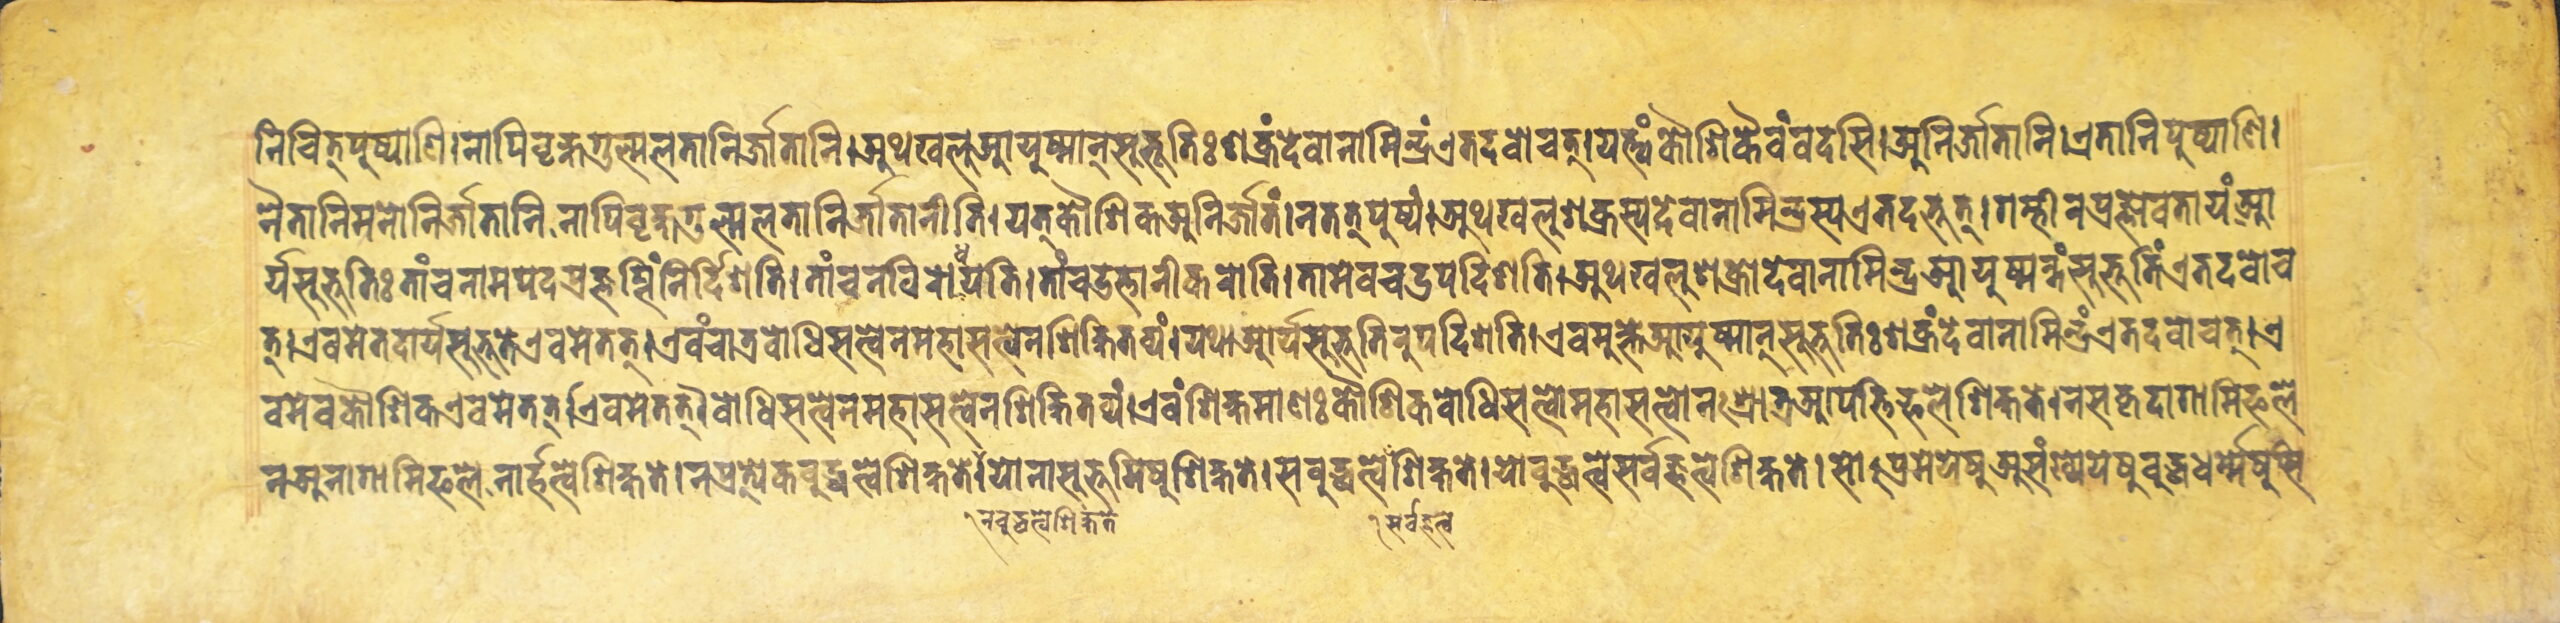 निचित्पुष्पाणि।नापिवृक्षगुल्मलतानिर्जातानि।अथखलुआयुष्मान्सुभूतिःशक्रंदेवानामिन्द्रंएतदवोचत्।यत्त्वंकौशिकैवंवदसि।अनिर्जातानि।एतानिपुष्पाणि।
नैतानिमनोनिर्जातानि,नापिवृक्षगुल्मलतानिर्जातानीति।यत्कौशिकअनिर्जातं।नतत्पुष्पं।अथखलुशक्रस्यदेवानामिन्द्रस्यएतदभूत्।गम्भीरप्रज्ञोवतायंआ
र्यसुभूतिःतांचनामपदप्रज्ञप्तिंनिर्दिशति।तांचनविरोधयति।तांचउत्तानीकरोति।तामेवचउपदिशति।अथखलुशक्रोदेवानामिन्द्रआयुष्मन्तंसुभूतिंएतदवोच
त्।एवमेतदार्यसुभूतेएवमेतत्।एवंचात्रबोधिसत्त्वेनमहासत्त्वेनशिक्षितव्यं।यथाआर्यसुभूतिरुपदिशति।एवमुक्तेआयुष्मान्सुभूतिःशक्रंदेवानामिन्द्रंएतदवोचत्।ए
वमेवकौशिकएवमेतत्।एवमेतत्।बोधिसत्त्वेनमहासत्त्वेनशिक्षितव्यं।एवंशिक्षमाणःकौशिकबोधिसत्त्वोमहासत्त्वोनःश्रोत्रआपत्तिफलेशिक्षते।नसकृदागामिफले
नअनागामिफले,नार्हत्त्वेशिक्षते।नप्रत्येकबुद्धत्वेशिक्षते।योनासुभूमिषुशिक्षते।सबुद्धत्वेशिक्षते।योबुद्धत्वेसर्वज्ञत्वेशिक्षते।सोऽप्रमेयेषुअसंख्येयेषुबुद्धधर्म्मेषुसि
नबुद्धत्वेशिक्षते
सर्वज्ञत्वे